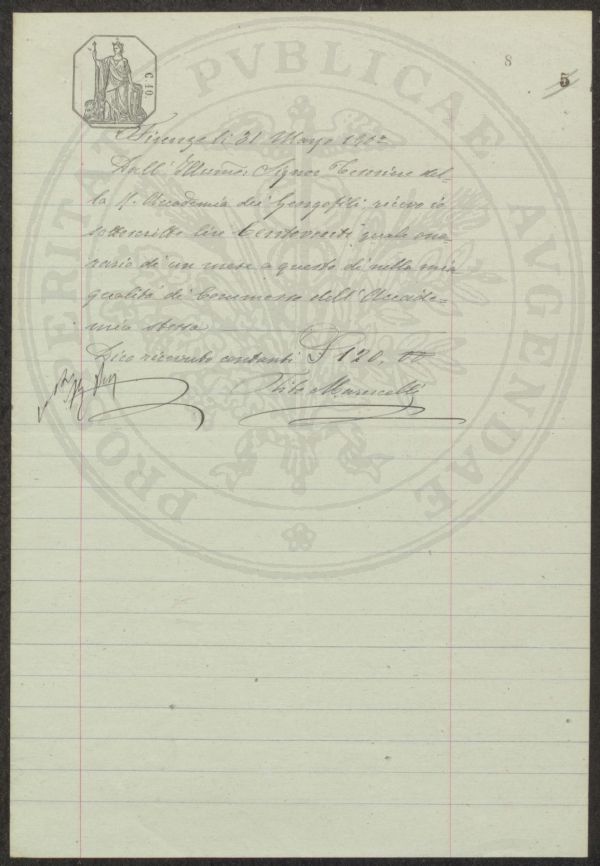 C. 10
8
5
PROSPERITATI PVBLICAE AVGENDAE
Firenze li 31 Marzo
Dall' Illumo: Signor Tesoriere del-
la R. Accademia dei Georgofili ricevo io
sottoscritto lire Centoventi quale ono-
rario di un mese a questo dì nella mia
qualità di Commesso dell' Accade-
mia stessa
Dico ricevuto contanti £ 120,00